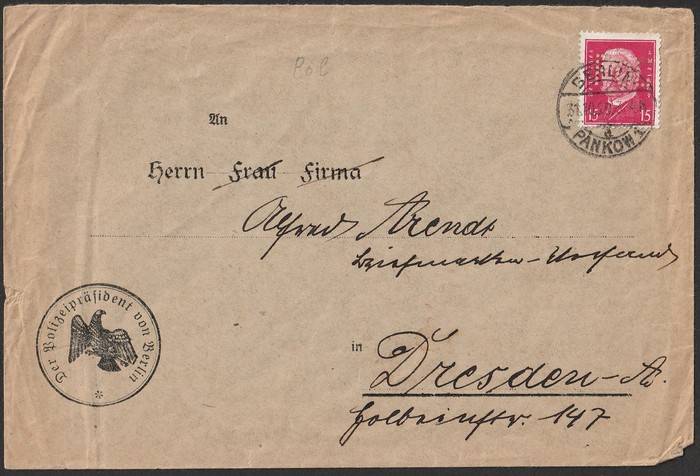 Pol
An
Herrn Frau Firma
Alfred Arends
Briefmarken-Versand
in
Dresden-A.
Holbeinstr. 147
Der Polizeipräsident von Berlin
BERLIN
PANKOW 1
a
15 15